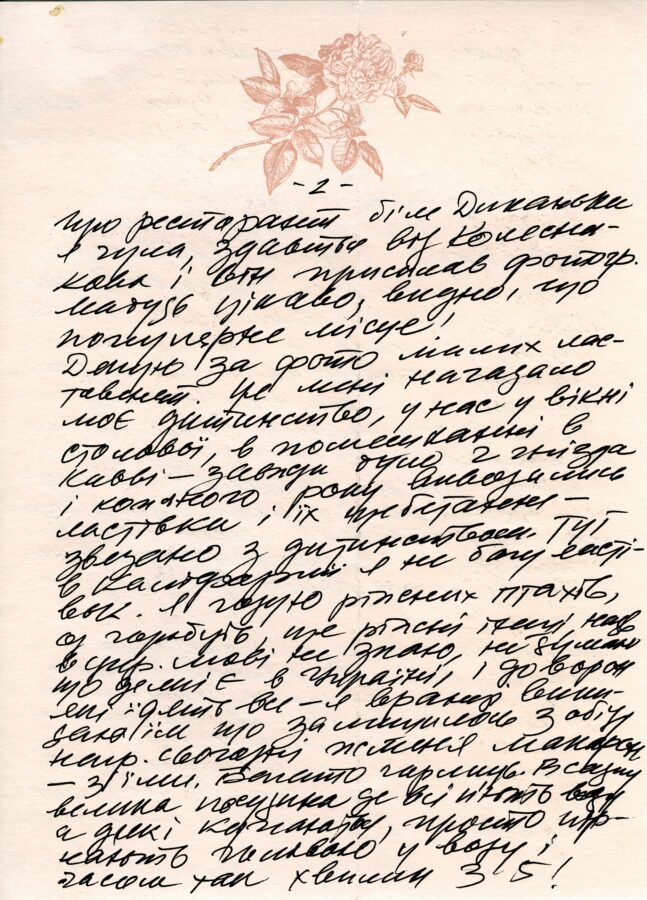 - 2 -
про ресторант біля Диканьки
я чула, здається від Колесни-
кова і він присилав фотогр.
мабудь цікаво, видно, що
популярне місце!
Дякую за фото милих лас-
тавенят. Це мені нагадало
моє дитинство, у нас у вікні
столової, в помешканні в
Києві – завжди було 2 гнізда
і кожного року виводились
ластівки і їх щебетання –
звязано з дитинством. Тут
в Каліфорнії я не бачу ласті-
вок. Я годую різних птахів,
є горобці, ще різні інші, назв
в укр. мові не знаю, не думаю
що деякі є в Україні, і до ворон
які їдять все – я вранці вики-
даю їм що залишилось з обіду
напр. сьогодні жменя макарон
– з'їли. Багато горлиць. В саду
велика посудина де всі п'ють воду
а деякі купаються, просто пір-
нають головою у воду і
часом так хвилин 3-5!